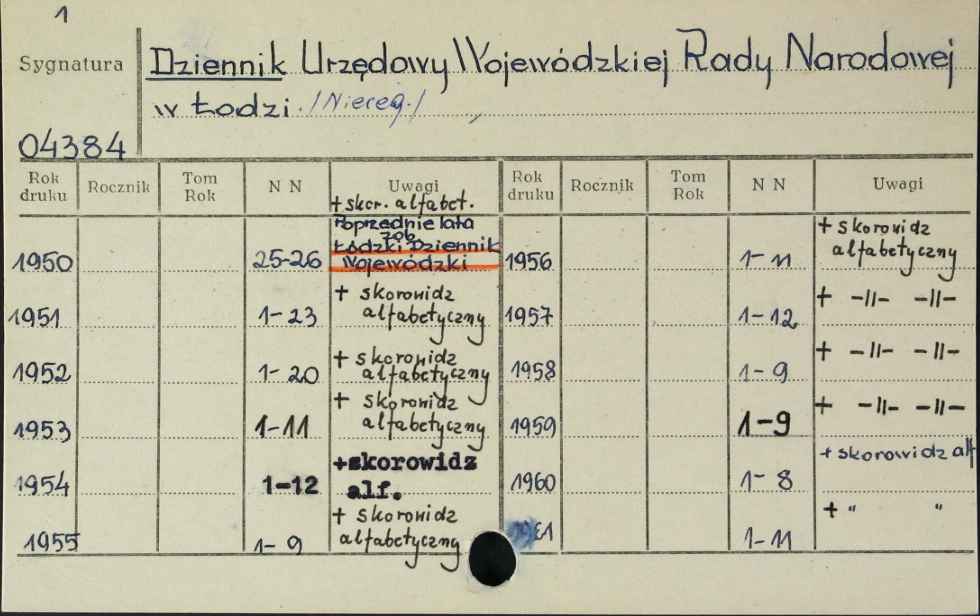 1
Sygnatura Dziennik Urzędowy Wojewódzkiej Rady Narodowej
w Łodzi. /Niereg./
04384
Rok druku Rocznik Tom Rok N N Uwagi Rok druku Rocznik Tom Rok N N Uwagi
+ skor. alfabet.
Poprzednie lata
zob.
Łódzki Dziennik
1950 25-26 Wojewódzki 1956 1-11 + skorowidz alfabetyczny
1951 1-23 + skorowidz alfabetyczny 1957 1-12 + -||- -||-
1952 1-20 + skorowidz alfabetyczny 1958 1-9 + -||- -||-
1953 1-11 + skorowidz alfabetyczny 1959 1-9 + -||- -||-
1954 1-12 +skorowidz alf. 1960 1-8 + skorowidz alf
1955 1-9 + skorowidz alfabetyczny 1961 1-11 + " "